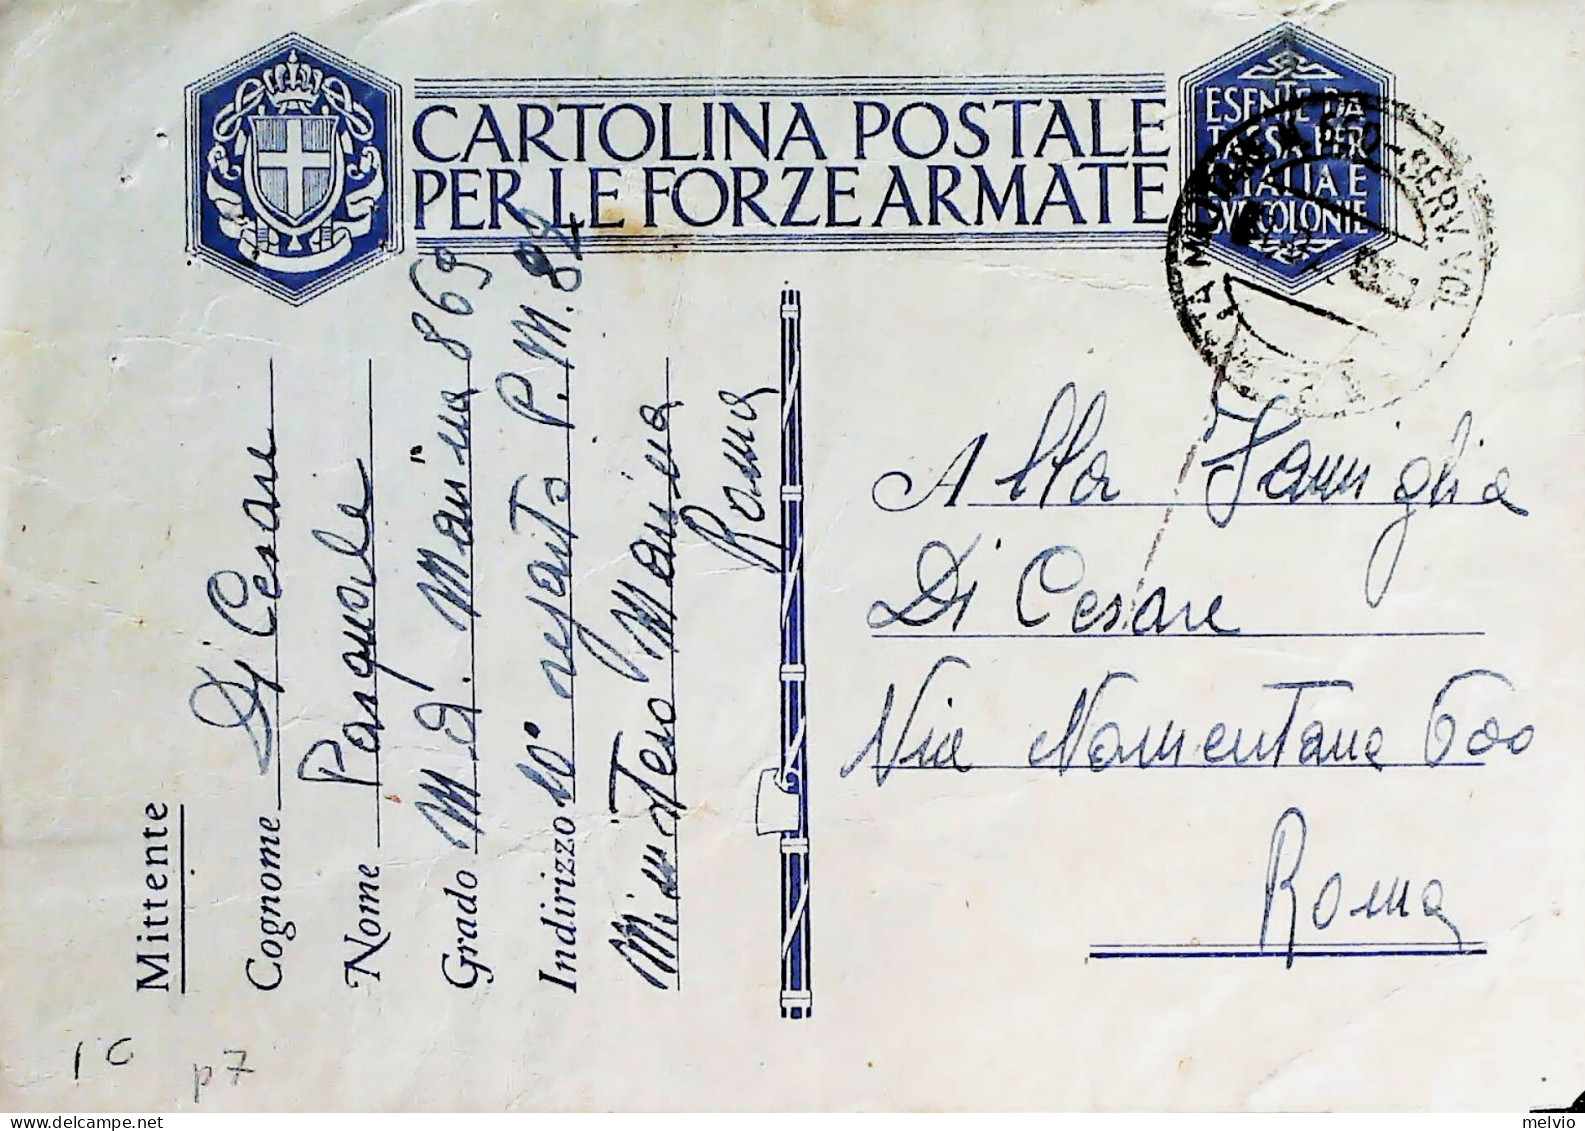 CARTOLINA POSTALE
PER LE FORZE ARMATE
ESENTE DA
TASSA PER
L'ITALIA E
SVE COLONIE
Mittente
Cognome Di Cesare
Nome Pasquale
Grado Marina 869
Indirizzo 10° P.M. 82
Ministero Marina
Roma
Alla Famiglia
Di Cesare
Via Nomentana 600
Roma
1 C
p7
www.delcampe.net
melvio